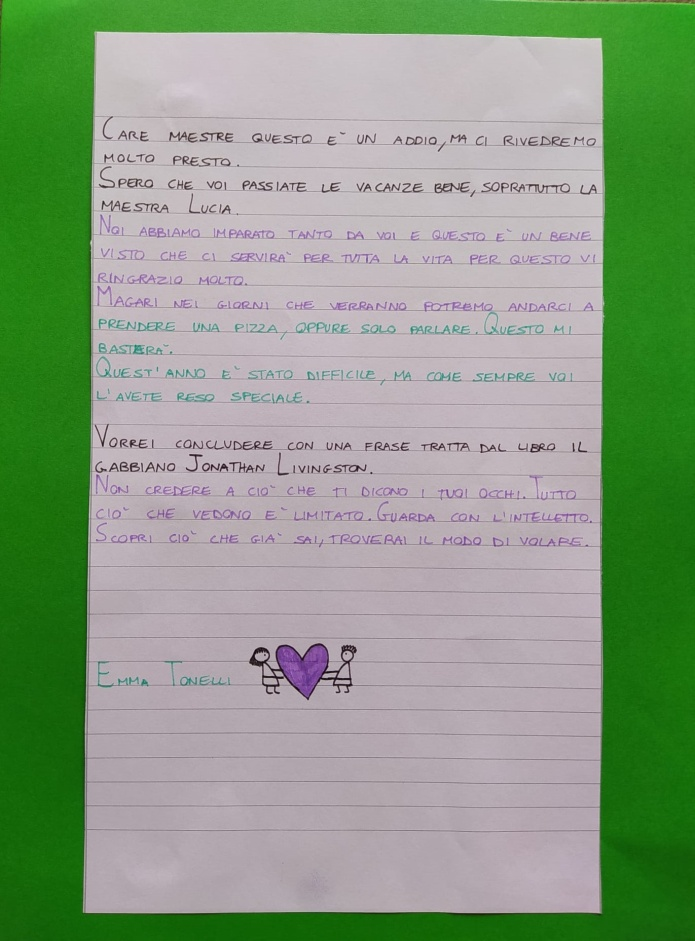 CARE MAESTRE QUESTO E` UN ADDIO, MA CI RIVEDREMO
MOLTO PRESTO.
SPERO CHE VOI PASSIATE LE VACANZE BENE, SOPRATTUTTO LA
MAESTRA LUCIA.
NOI ABBIAMO IMPARATO TANTO DA VOI E QUESTO E` UN BENE
VISTO CHE CI SERVIRA` PER TUTTA LA VITA PER QUESTO VI
RINGRAZIO MOLTO.
MAGARI NEI GIORNI CHE VERRANNO POTREMO ANDARCI A
PRENDERE UNA PIZZA, OPPURE SOLO PARLARE. QUESTO MI
BASTERA`.
QUEST'ANNO E` STATO DIFFICILE, MA COME SEMPRE VOI
L'AVETE RESO SPECIALE.
VORREI CONCLUDERE CON UNA FRASE TRATTA DAL LIBRO IL
GABBIANO JONATHAN LIVINGSTON.
NON CREDERE A CIO` CHE TI DICONO I TUOI OCCHI. TUTTO
CIO` CHE VEDONO E` LIMITATO. GUARDA CON L'INTELLETTO.
SCOPRI CIO` CHE GIA` SAI, TROVERAI IL MODO DI VOLARE.
EMMA TONELLI